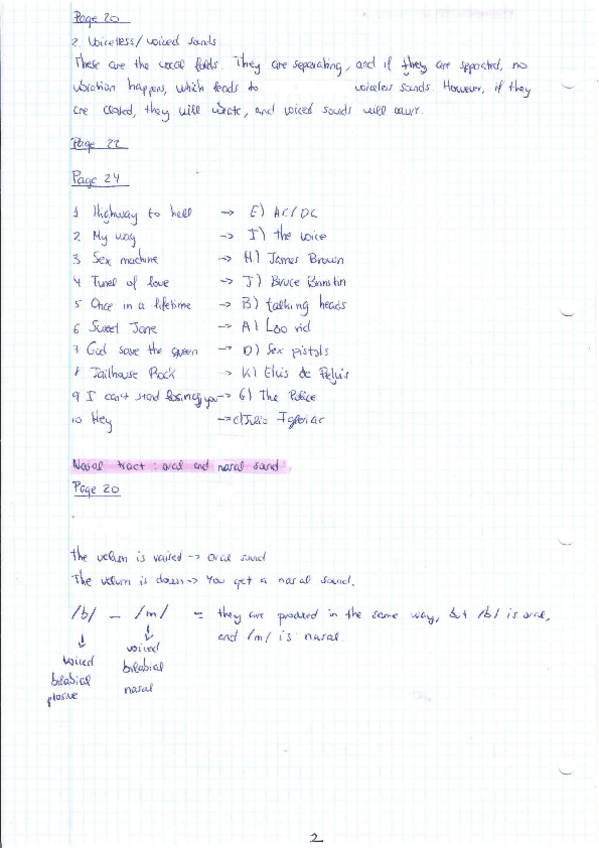 Page 20
2. Voiceless/voiced sands
These are the vocal folds. They are separating, and if they are seperated, no
vibration happens, which leads to voiceless sands. However, if they
are closed, they will vibrate, and voiced sounds will occurr.
Page 22
Page 24
1 Highway to hell -> E) AC/DC
2 My way -> I) the voice
3 Sex machine -> H) James Brown
4 Tunel of love -> J) Bruce
5 Once in a lifetime -> B) talking heads
6 Sweet Jane -> A) Loo rid
7 God save the queen -> D) Sex pistols
8 Jailhouse Rock -> K) Elvis de Pelvis
9 I can't stand losing you -> G) The Police
10 Hey -> Julio
Nasal tract: oral and nasal sand
Page 20
the velum is raised -> oral sound
The velum is down -> You get a nasal sound.
/b/ – /m/ = they are produced in the same way, but /b/ is oral,
and /m/ is nasal
voiced
bilabial
plosive
voiced
bilabial
nasal
2